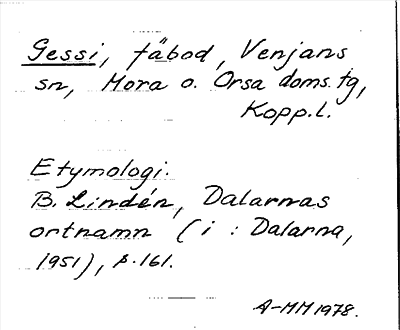 Gessi, fäbod, Venjans
sn, Mora o. Orsa doms. tg,
Kopp.l.
Etymologi:
B. Lindén, Dalarnas
ortnamn (i : Dalarna,
1951), s. 161.
A-MM 1978.